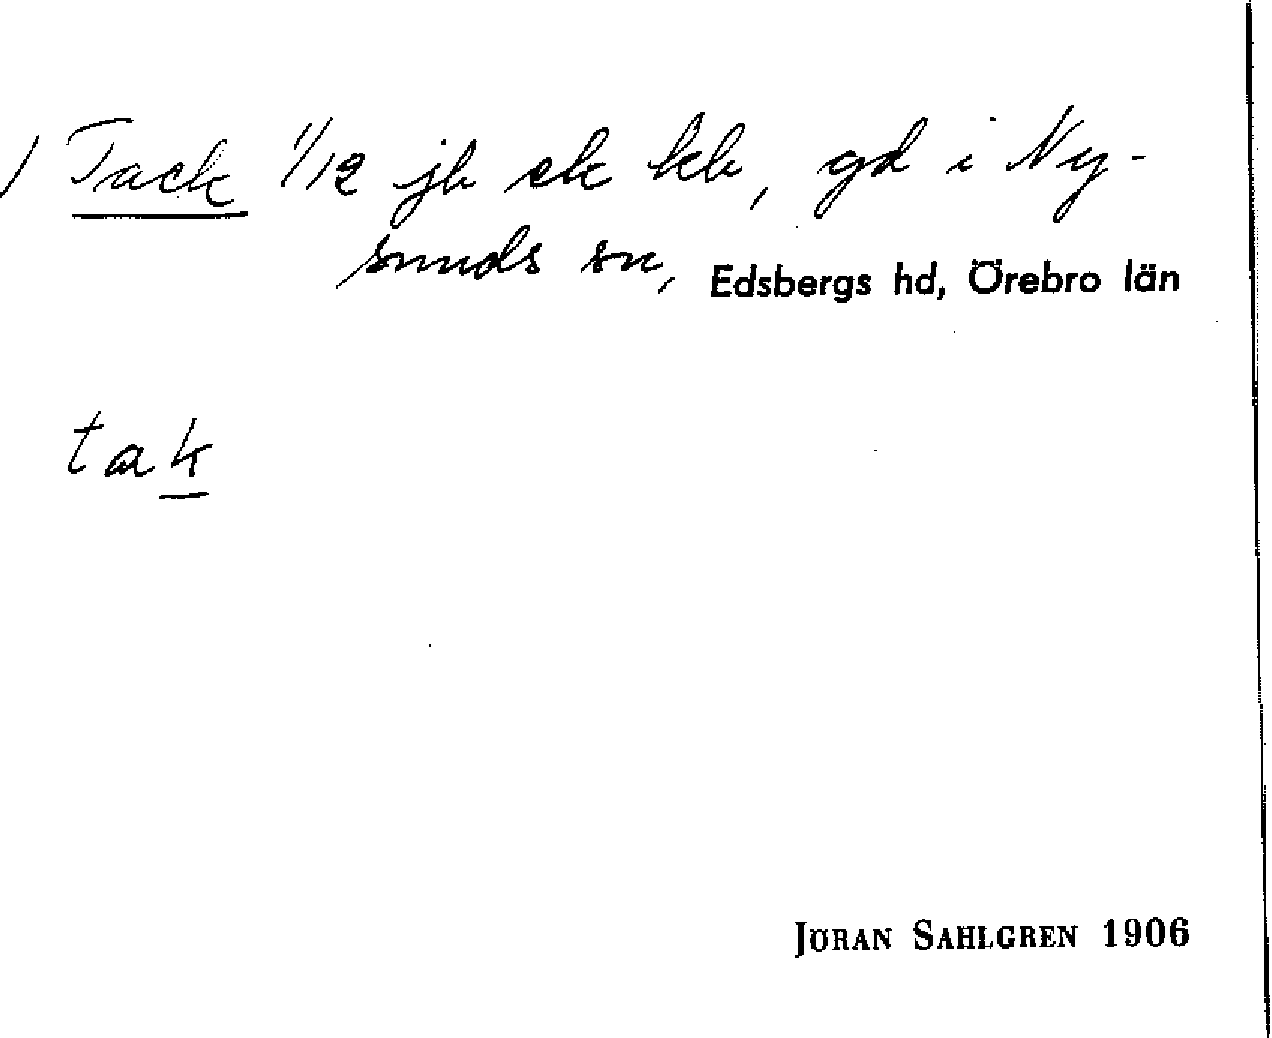 / Tack 1/12 jb ek kb, gd i Ny-
sunds sn, Edsbergs hd, Örebro län
tak
JÖRAN SAHLGREN 1906